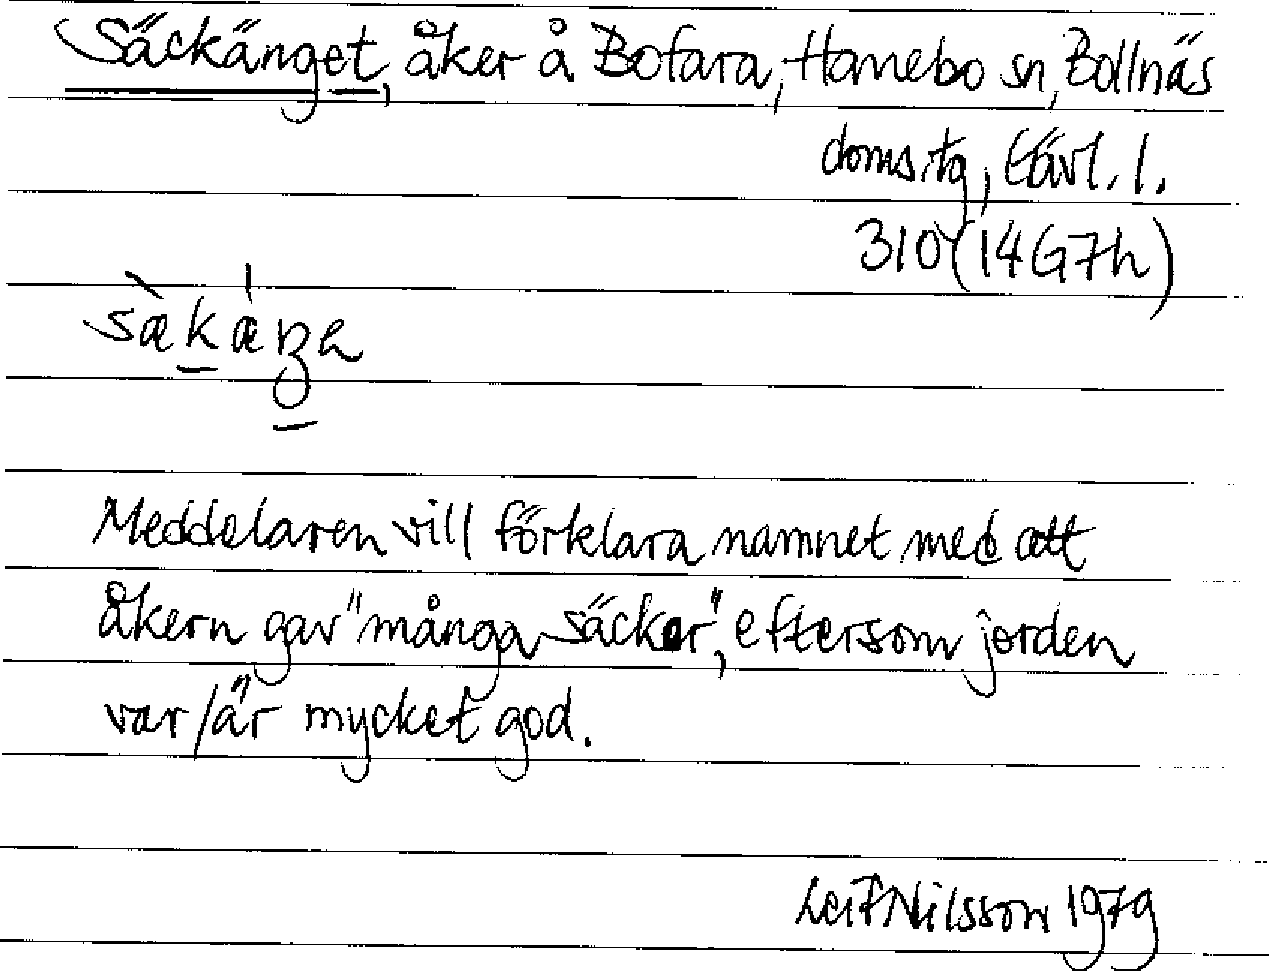 Säckänget, åker å Bofara, Hanebo sn, Bollnäs
doms.tg, Gävl. l.
310 (14G7h)
Meddelaren vill förklara namnet med att
åkern gav "många säcker", eftersom jorden
var/är mycket god.
Leif Nilsson 1979